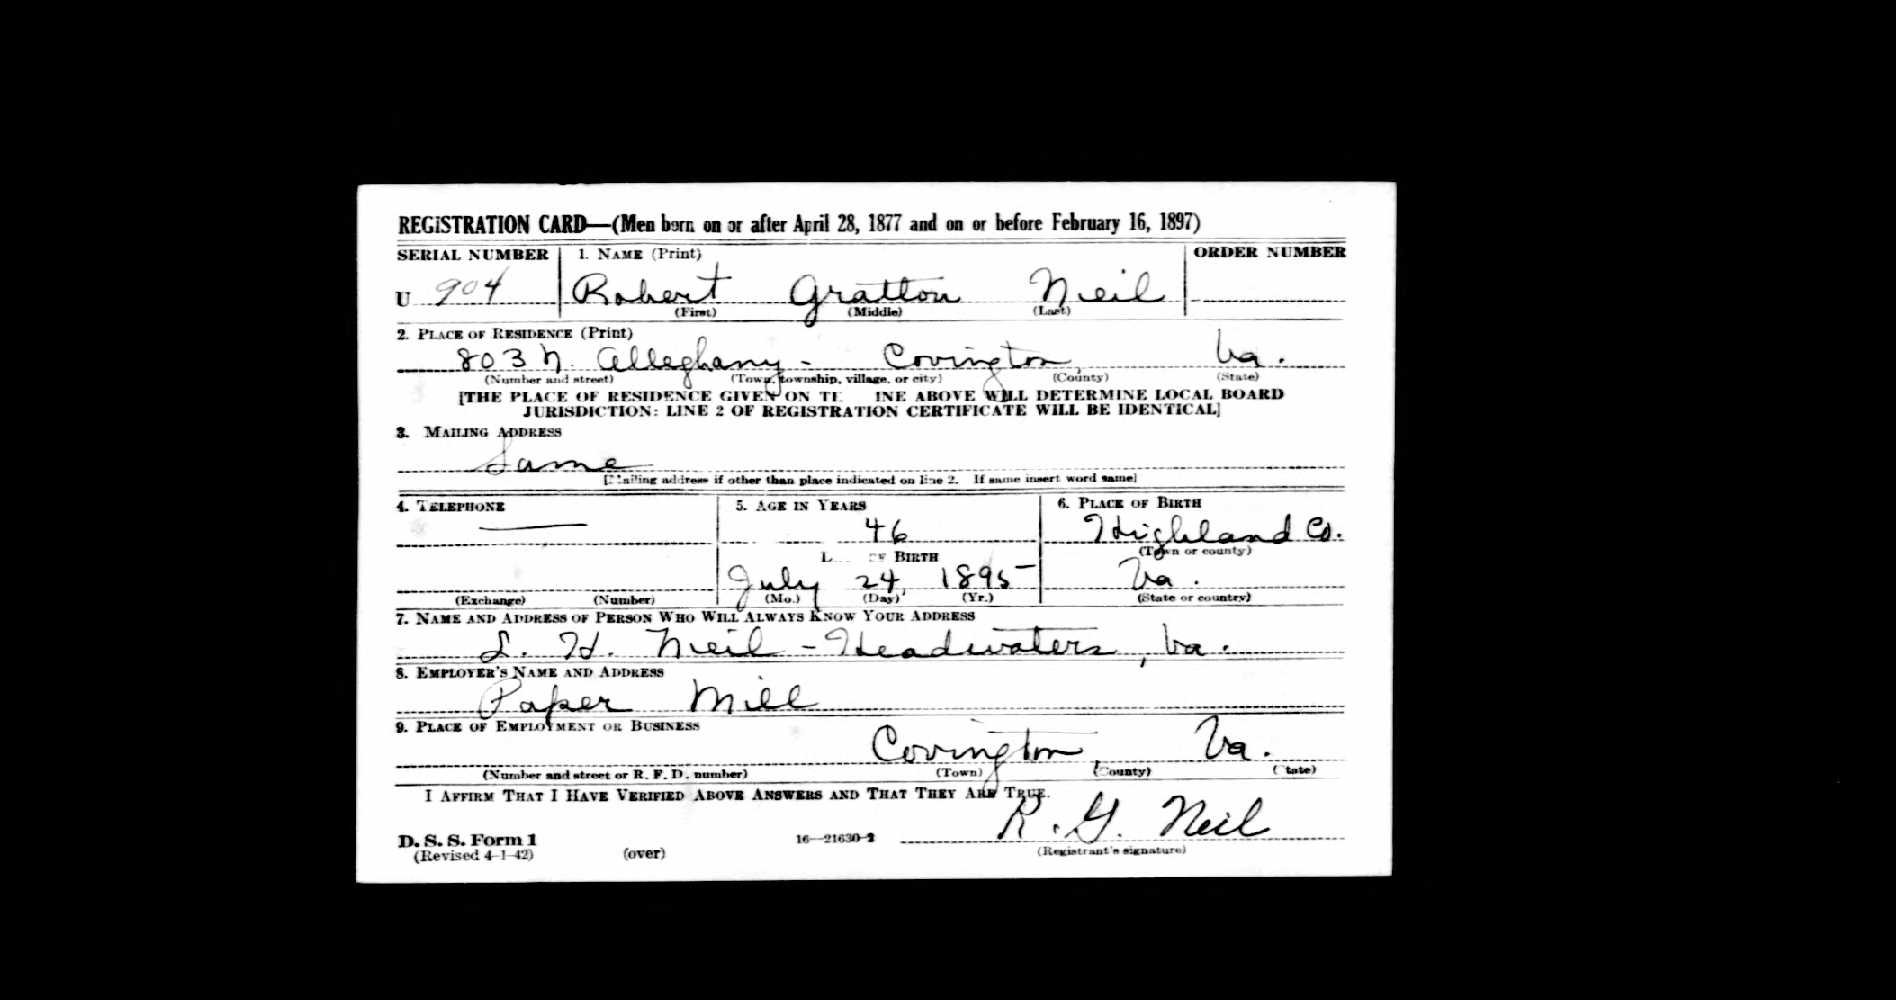 REGISTRATION CARD—(Men born on or after April 28, 1877 and on or before February 16, 1897)
SERIAL NUMBER 1. NAME (Print) ORDER NUMBER
U 904 Robert Gratton Neil
(First) (Middle) (Last)
2. PLACE OF RESIDENCE (Print)
803 N. Alleghany - Covington Va.
(Number and street) (Town, township, village, or city) (County) (State)
[THE PLACE OF RESIDENCE GIVEN ON INE ABOVE WILL DETERMINE LOCAL BOARD
JURISDICTION: LINE 2 OF REGISTRATION CERTIFICATE WILL BE IDENTICAL]
3. MAILING ADDRESS
Same
[Mailing address if other than place indicated on line 2. If same insert word same]
4. TELEPHONE 5. AGE IN YEARS 6. PLACE OF BIRTH
46 Highland Co.
(Town or county)
BIRTH
July 24, 1895 Va.
(Exchange) (Number) (Mo.) (Day) (Yr.) (State or country)
7. NAME AND ADDRESS OF PERSON WHO WILL ALWAYS KNOW YOUR ADDRESS
S. H. Neil - Headwaters, Va.
8. EMPLOYER'S NAME AND ADDRESS
Paper Mill
9. PLACE OF EMPLOYMENT OR BUSINESS
Covington, Va.
(Number and street or R. F. D. number) (Town) (County) (State)
I AFFIRM THAT I HAVE VERIFIED ABOVE ANSWERS AND THAT THEY ARE TRUE.
R. G. Neil
D. S. S. Form 1 16—21630-2
(Revised 4-1-42) (over) (Registrant's signature)